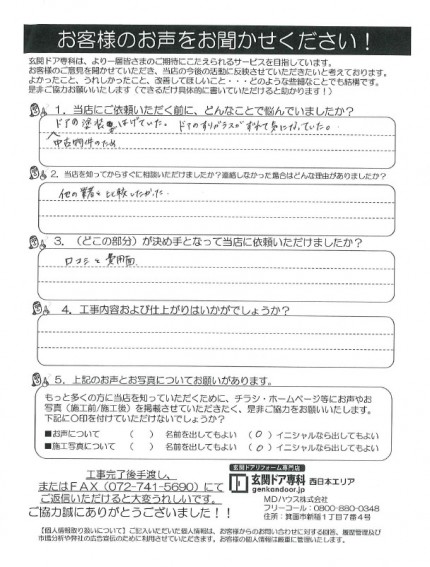 お客様のお声をお聞かせください！
玄関ドア専科は、より一層皆さまのご期待にこたえられるサービスを目指しています。
お客様のご意見を聞かせていただき、当店の今後の活動に反映させていただきたいと考えております。
よかったこと、うれしかったこと、改善してほしいこと・・・どのような些細なことでも結構です。
是非ご協力お願いいたします（できるだけ具体的に書いていただけると助かります！）
1．当店にご依頼いただく前に、どんなことで悩んでいましたか？
ドアの塗装はげていた。ドアのすりガラスがすれて気になっていた。
中古物件のため
2．当店を知ってからすぐに相談いただけましたか？連絡しなかった場合はどんな理由がありましたか？
他の業者と比較したかった.
3．（どこの部分）が決め手となって当店に依頼いただけましたか？
口コミと費用面
4．工事内容および仕上がりはいかがでしょうか？
5．上記のお声とお写真についてお願いがあります。
もっと多くの方に当店を知っていただくために、チラシ・ホームページ等にお声やお
写真（施工前/施工後）を掲載させていただきたく、是非ご協力をお願いいたします。
下記に〇印を付けていただけないでしょうか？
■お声について （ ） 名前を出してもよい （○）イニシャルなら出してもよい
■施工写真について （ ） 名前を出してもよい （○）イニシャルなら出してもよい
工事完了後手渡し、
またはＦＡＸ（072-741-5690）にて
ご返信いただけると大変うれしいです。
ご協力誠にありがとうございました！！
玄関ドアリフォーム専門店
玄関ドア専科 西日本エリア
genkandoor.jp
ＭＤハウス株式会社
フリーコール：0800-880-0348
住所：箕面市新稲1丁目7番4号
【個人情報取り扱いについて】ご記入いただいた個人情報は、お客様からのお問い合わせに対する回答、履歴管理及び
市場分析や弊社の広告宣伝のために利用させていただきます。お客様の個人情報は厳重に管理いたします。